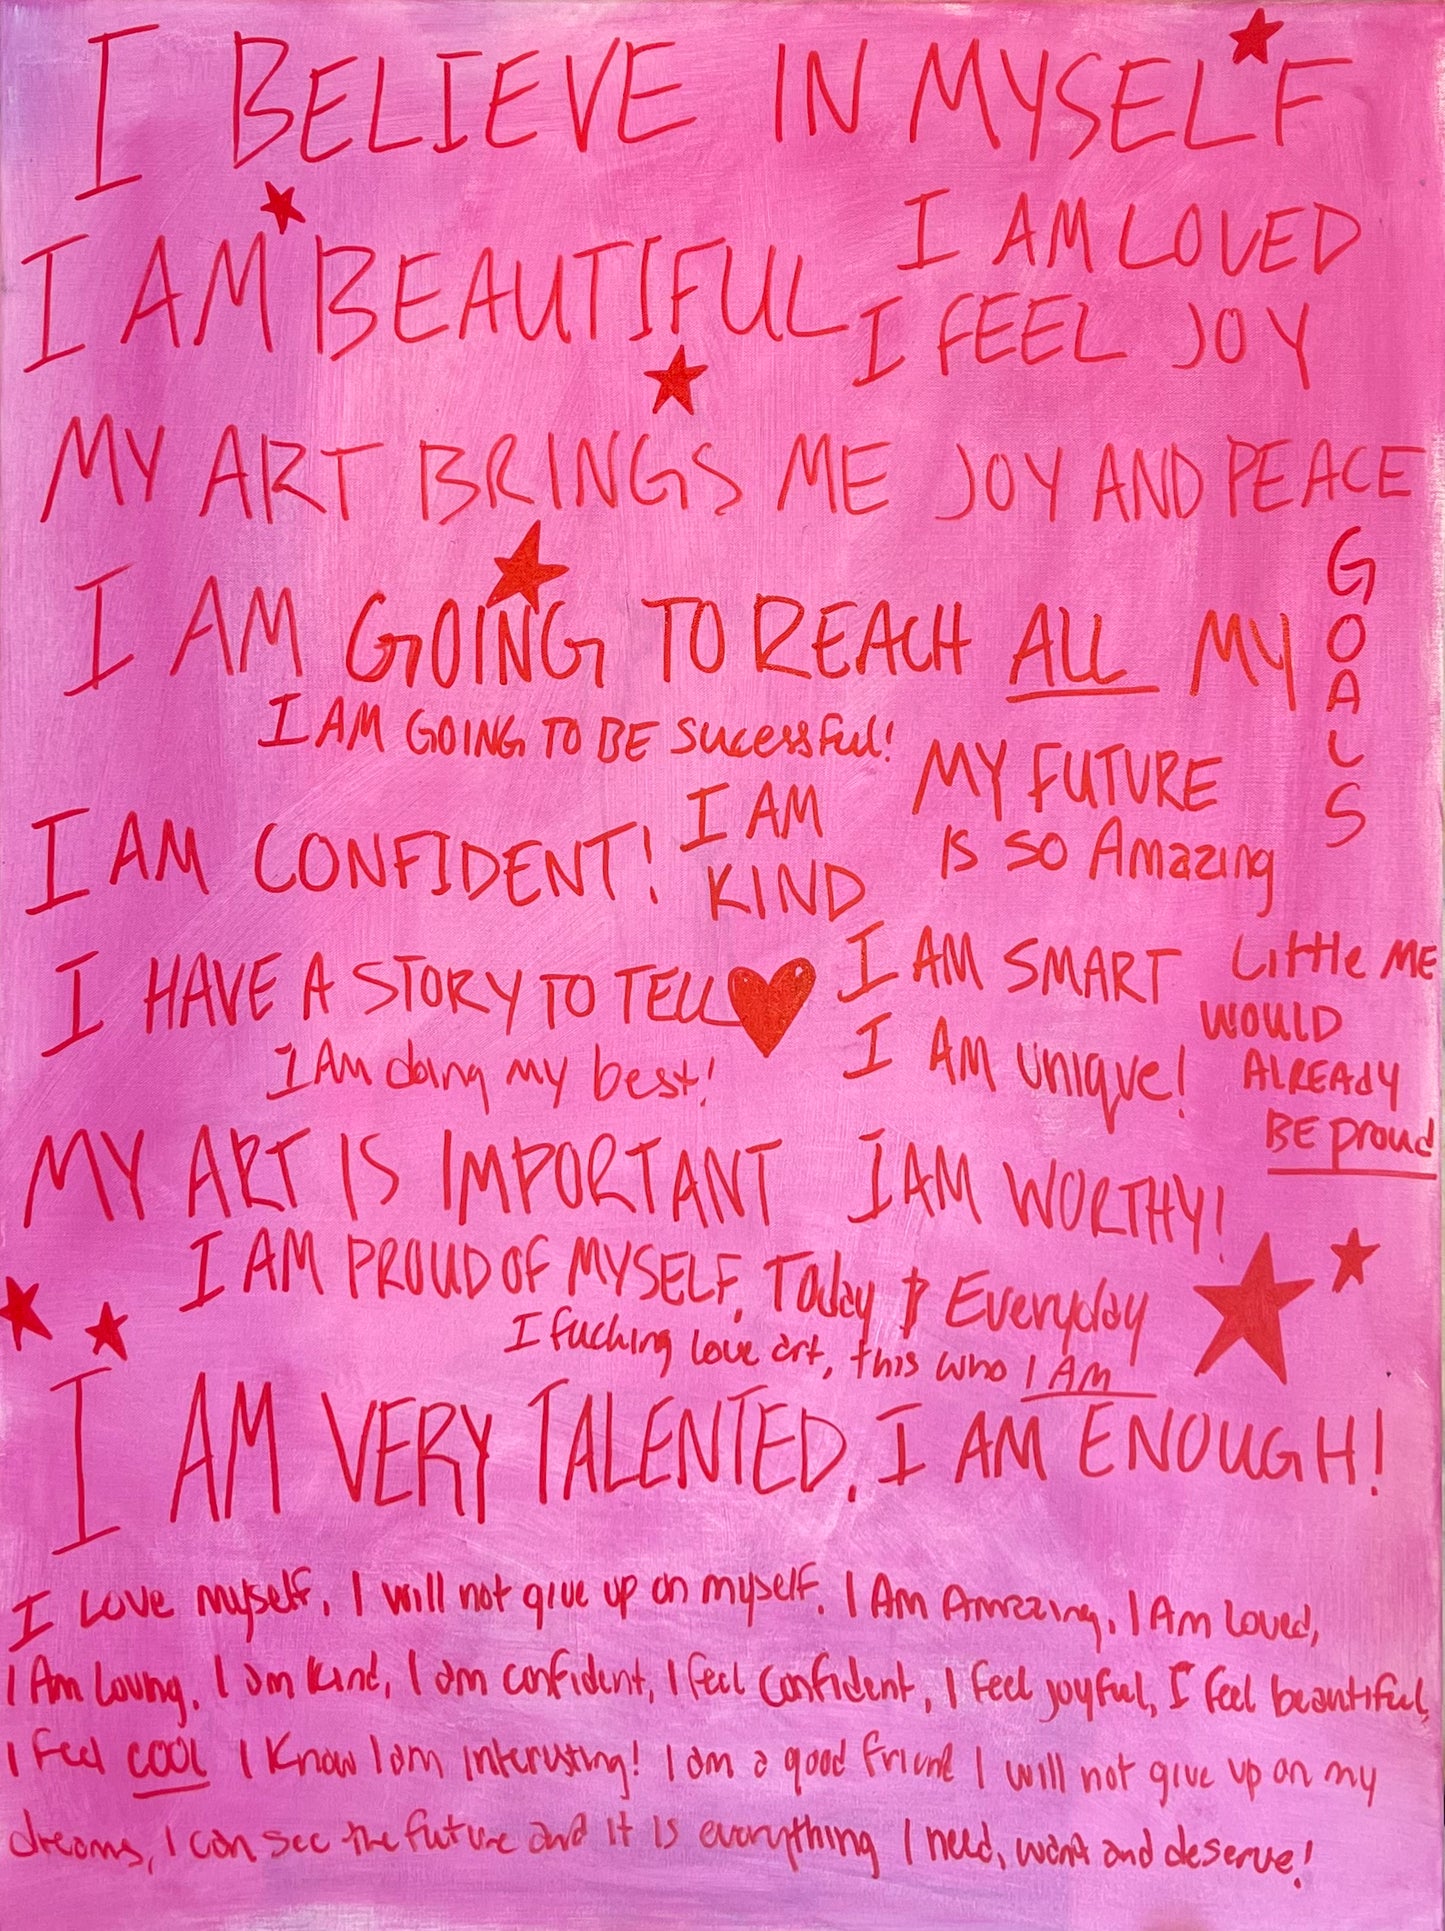 I BELIEVE IN MYSELF
I AM BEAUTIFUL
I AM LOVED
I FEEL JOY
MY ART BRINGS ME JOY AND PEACE
I AM GOING TO REACH ALL MY GOALS
I AM GOING TO BE sucessful!
MY FUTURE
IS SO Amazing
I AM CONFIDENT!
I AM
KIND
I HAVE A STORY TO TELL
I AM SMART
Little ME
WOULD
ALREAdy
BE proud
I AM doing my best!
I AM unique!
MY ART IS IMPORTANT
I AM WORTHY!
I AM PROUD OF MYSELF. Today & Everyday
I fucking love art, this who I AM
I AM VERY TALENTED. I AM ENOUGH!
I Love myself, I will not give up on myself. I Am Amazing, I Am Loved,
I Am Loving, I am kind, I am confident, I feel confident, I feel joyful, I feel beautiful,
I feel cool I Know I am interesting! I am a good friend I will not give up on my
dreams, I can see the future and it is everything I need, want and deserve!